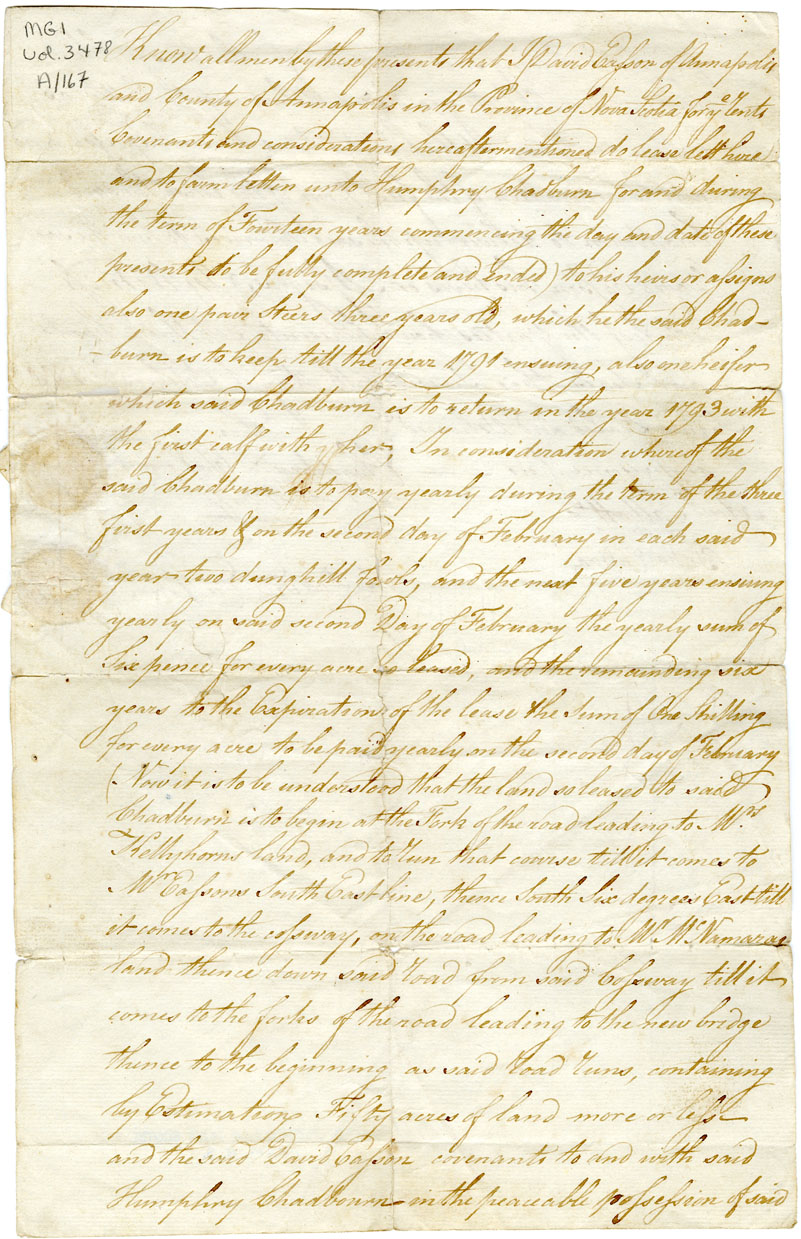 MG1
Vol. 3478
A/167
Know all men by these presents that I David Easson of Annapolis
and County of Annapolis in the Province of Nova Scotia for ye Rents
Covenants and considerations hereafter mentioned do lease lett hire
and to farm letten unto Humphry Chadburn for and during
the term of Fourteen years commencing the day and date of these
presents to be fully complete and ended) to his heirs or assigns
also one pair Steers three years old, which he the said Chad-
-burn is to keep till the year 1791 ensuing, also one heifer
which said Chadburn is to return in the year 1793 with
the first calf with her, In consideration whereof the
said Chadburn is to pay yearly during the term of the three
first years & on the second day of February in each said
year two dunghill fowls, and the next five years ensuing
yearly on said second Day of February the yearly sum of
Six pence for every acre so leased, and the remainding six
years to the Expiration of the lease the Sum of One Shilling
for every acre to be paid yearly on the second day of February
(Now it is to be understood that the land so leased to said
Chadburn is to begin at the Fork of the road leading to Mrs
Kellyhorns land, and to run that course till it comes to
Mr Eassons South East line, thence South Six degrees East till
it comes to the cossway, on the road leading to Mr McNamaras
land thence down said road from said Cossway till it
comes to the forks of the road leading to the new bridge
thence to the beginning as said road runs, containing
by Estimation Fifty acres of land more or less
and the said David Easson covenants to and with said
Humphry Chadbourn in the peaceable possession of said